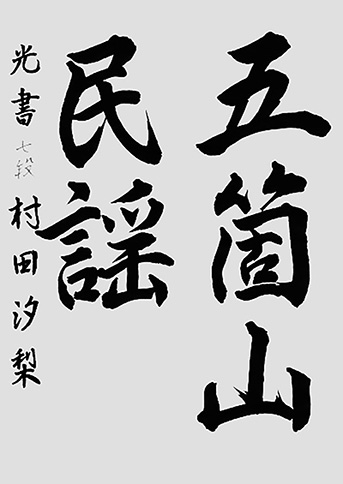 五箇山
民謡
光書 七段 村田汐梨